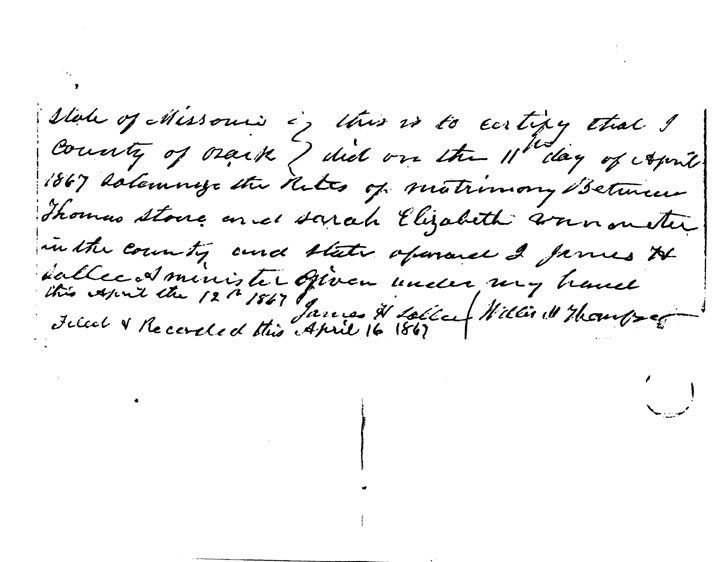 State of Missouri } this is to certify that I
County of Ozark } did on the 11th day of April
1867 Solemnize the Rites of matrimony Between
Thomas Stone and Sarah Elizabeth
in the County and State I James H
Sallee A minister Given under my hand
this April the 12th 1867
James H Sallee / Willis H Thompson
Filed & Recorded this April 16 1867